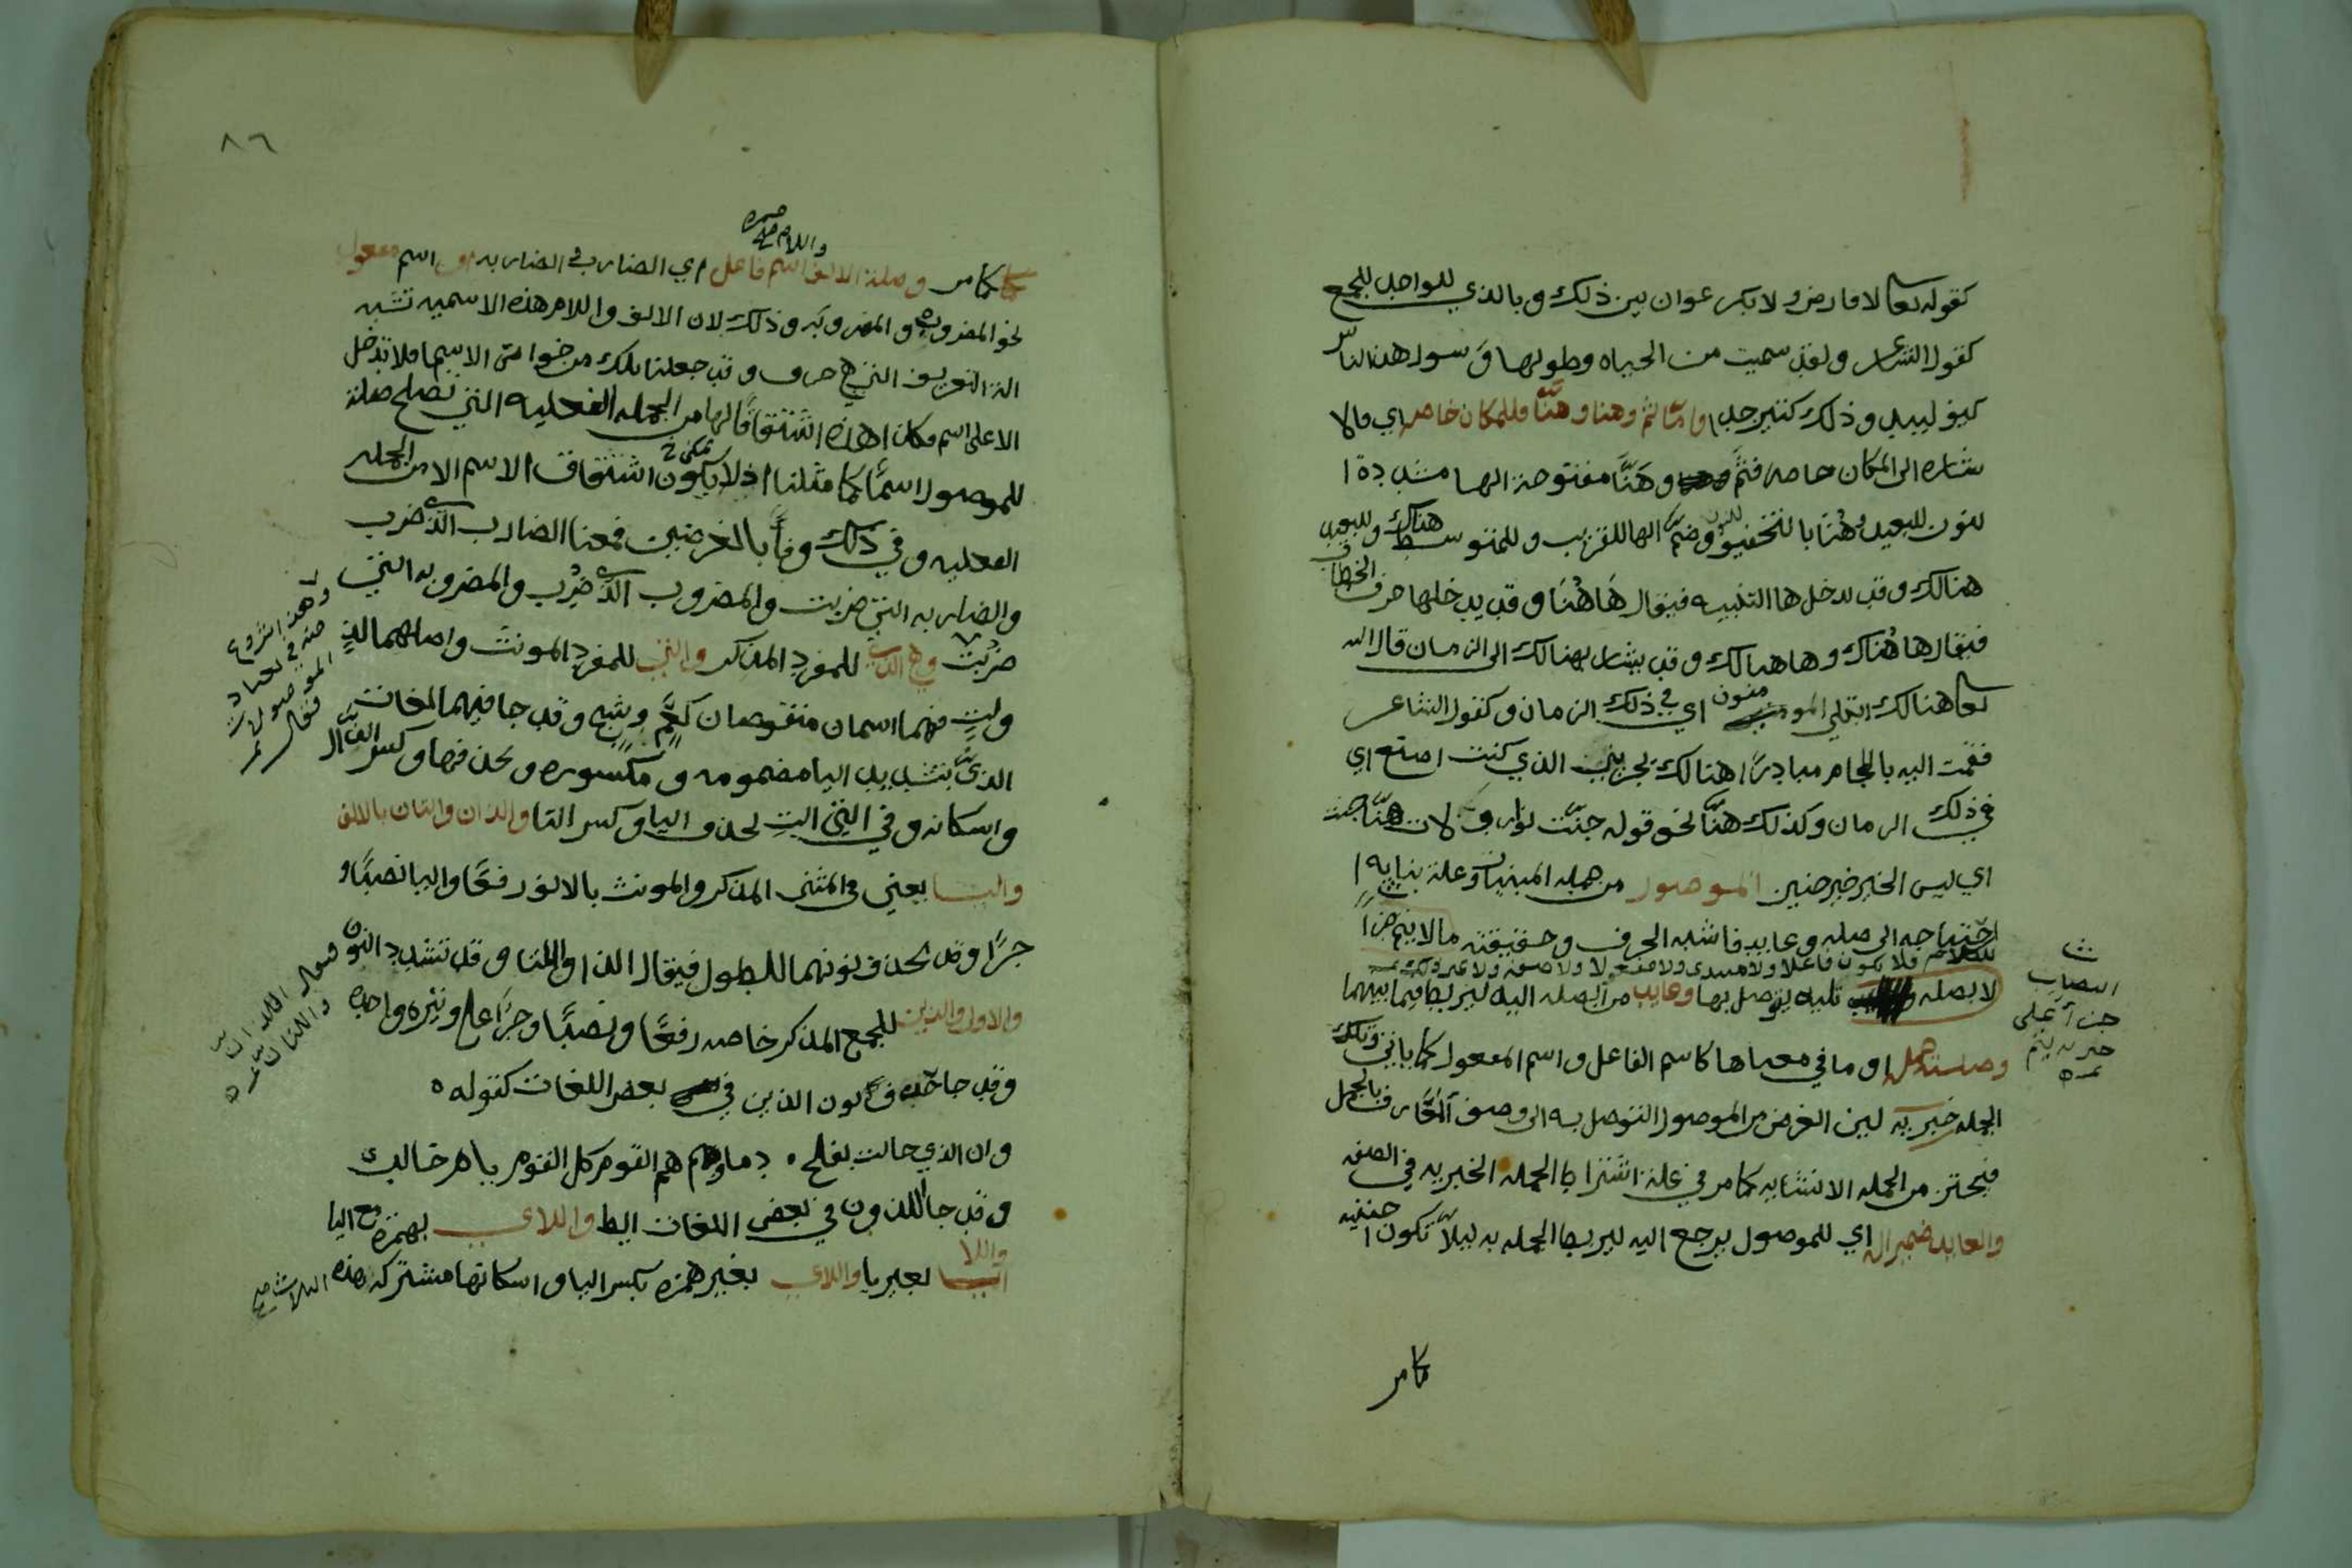 كقوله تعا لا فارض ولا بكر عوان بين ذلك وبالذي للواحد للجمع
كقول الشاعر ولقد سميت من الحياه وطولها وسول هذا الناس
كيف لبيد وذلك كثير جدا واما ثم وهنا وهنا فللمكان خاصه اي فلا
يشار الى المكان خاصه فثم وهَنَّا مفتوحة الها مشددة ا
لنون للبعيد وهُنا بالتخفيف للنون وضم الها للقريب وللمتوسط هناك وللبعيد
هنالك وقد يدخل ها التنبيه فيقال هَاهُنَا وقد يدخلها حرف الخطاب
فيقال هاهُناك وهاهنالك وقد يشار بهنالك الى الزمان قال الله
تعا هنالك ابتلي المومنون اي في ذلك الزمان وكقول الشاعر
فقمت اليه باللجام مبادرًا هنالك يجزيني الذي كنت اصنع اي
في ذلك الزمان وكذلك هنَّا نحو قوله حنّت نوار ولات هنّا حنت
اي ليس الحين حين حنين الموصول من جمله المبنيات وعلة بنايه ا
احتياجه الى صله وعايد فاشبه الحرف وحقيقته مالا يتم جزأ
للكلام فلا يكون فاعلا ولا مبتدى ولا مفعولا ولا صفه ولا غير ذلك
الا بصله تليه يوصل بها وعايد من الصله اليه ليربط فيما بينهما
ش
انتصاب
جزأ على
خبريه يتم
تمت
وصلته جمله او ما في معناها كاسم الفاعل واسم المفعول كما ياتي وتلك
الجمله خبريه لين الغرض من الموصول التوصل به الى وصف المعارف بالجمل
فيحترز من الجمله الانشايه كما مر في علة اشتراط الجمله الخبريه في الصفه
والعايد ضمير له اي للموصول يرجع اليه ليربط الجمله به ليلا تكون اجنبيه
كما مر
٨٦
كما مر وصلة الالف واللام اسم فاعل اي الضارب والضاربه او اسم مفعول
نحو المضروب والمضروبه وذلك لان الالف واللام هذه الاسميه تشبه
الة التعريف التي هي حرف وقد جعلنا تلك من خواص الاسما فلا تدخل
الا على اسم فكان هذه اشتقاقا لها من الجمله الفعليه التي تصلح صلة
للموصول اسمًا كما مثلنا اذ لا يكون اشتقاق الاسم الا من الجمله
الفعليه وفي ذلك وفآ بالغرضين فمعنا الضارب الذي ضرب
والضاربه التي ضربت والمضروب الذي ضُرِب والمضروبه التي
ضُرِبت وهي الذي للمفرد المذكر والتي للمفرد المونث واصلهما لذٍ
وهذا شروع
منه في تعداد
الموصولات
فقال
ولتٍ فهما اسمان منقوصان كعَمٍ وشَجٍ وقد جا فيهما لغات
الذيّ بتشديد اليا مضمومه ومكسوره وبحذفها وكسر الذال
واسكانه وفي التي التِ بحذف اليا وكسر التا والذان والتان بالالف
واليـا يعني في المثنى المذكر والمونث بالالف رفعًا واليا نصبًا و
جرًا وقد تحذف نونهما للطول فيقال اللذا واللتا وقد تشدد النون
فيقال اللذانّ
واللتانّ
والاولى والذين للجمع المذكر خاصه رفعًا ونصبًا وجرًا على وتيره واحده
وقد جا حذف نون الذين في بعض اللغات كقوله
وان الذي حانت بفلج دماوهم هم القوم كل القوم يا ام خالد
وقد جا اللذون في بعض اللغات ايضا واللاي بهمزه مع اليا
واللا بغير يا واللاي بغير همزه بكسر اليا واسكانها مشتركه هذه الثلاث